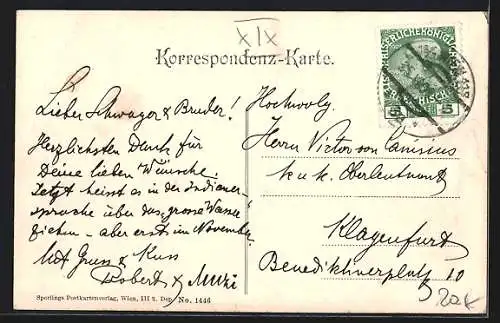 XIX
Korrespondenz-Karte.
Lieber Schwager & Bruder!
Herzlichsten Dank für
Deine lieben Wünsche.
Jetzt heisst es in der Indianer-
sprache über das "grosse Wasser
ziehen - aber erst im November.
Mit Gruss & Kuss
Robert & Mutzi
Hochwolg.
Herrn Victor von Canisius
k.u.k. Oberleutnant
Klagenfurt
Benediktinerplatz 10
KAISERLICHE KÖNIGLICHE
5 5
Sperlings Postkartenverlag, Wien, III 2. Dep. No. 1446